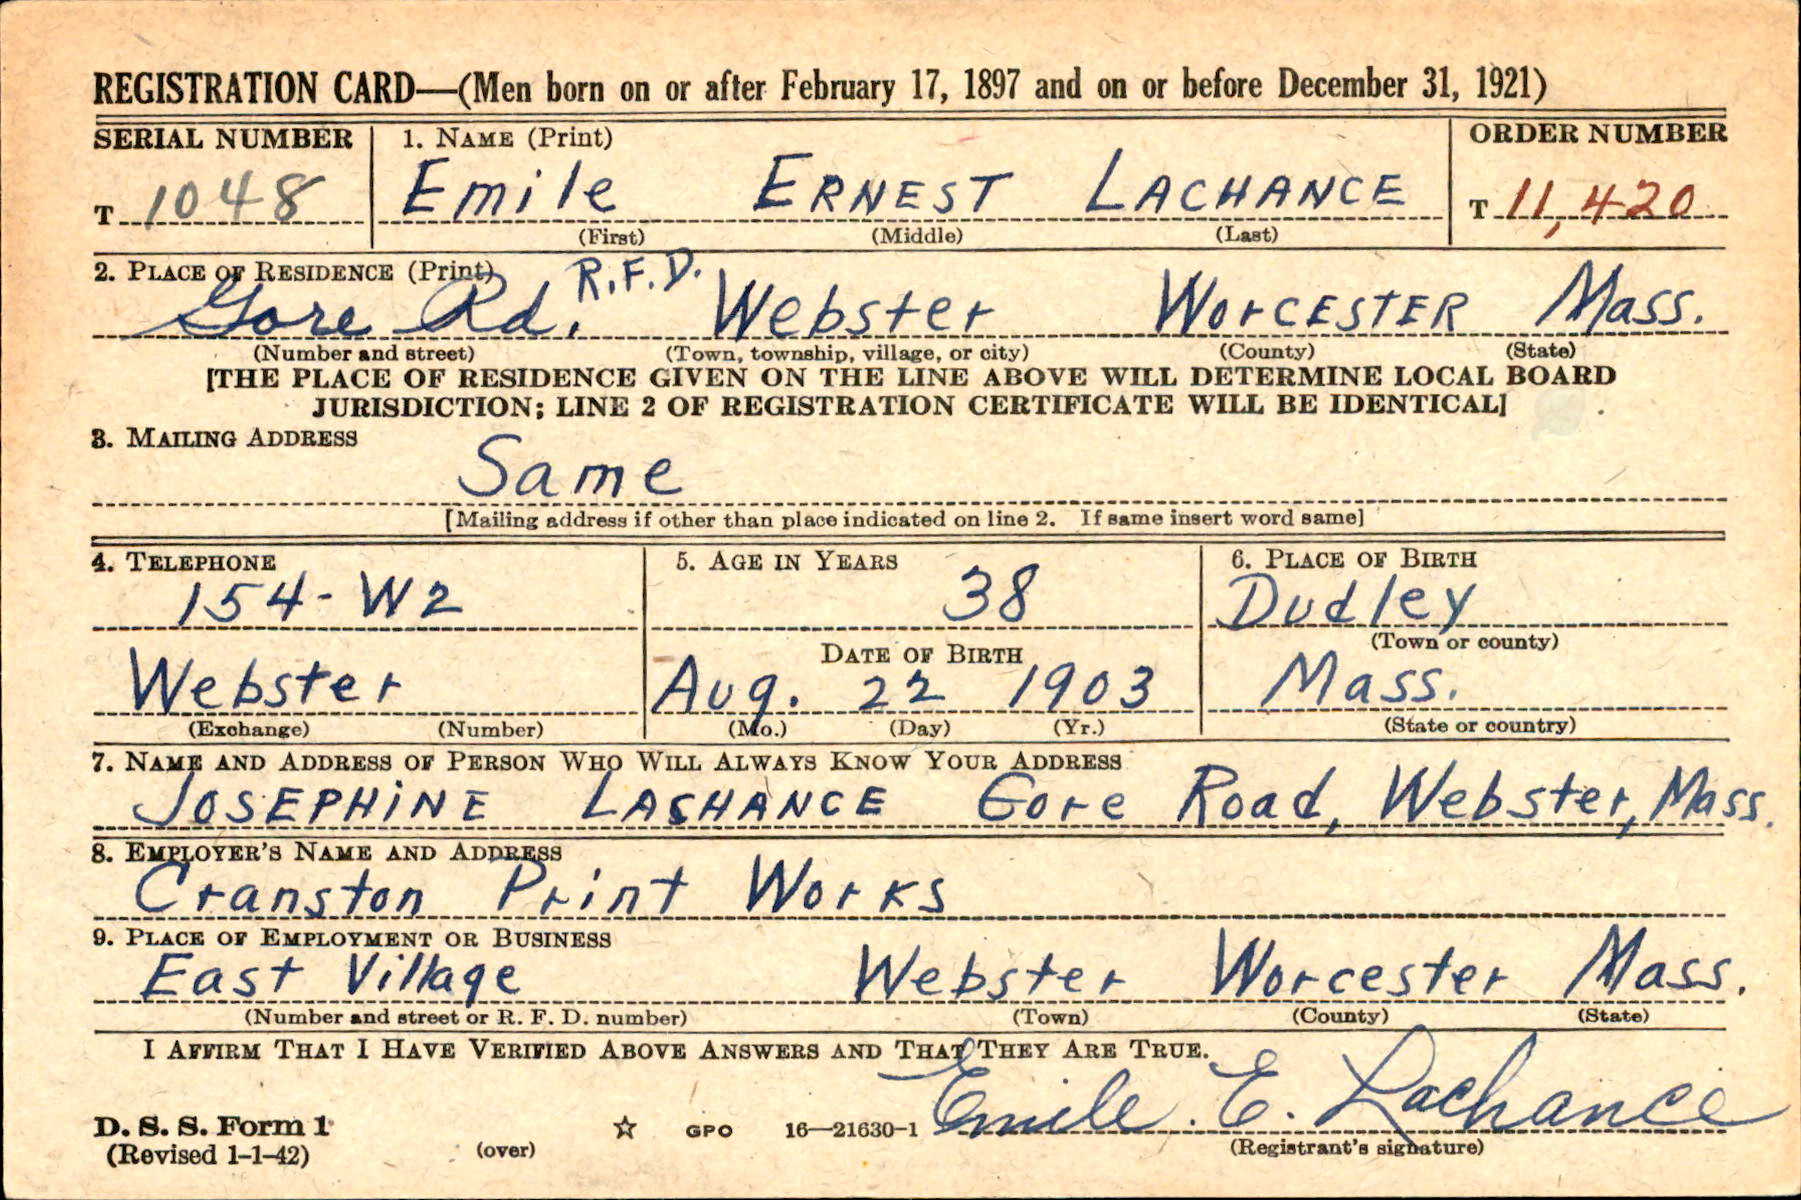 REGISTRATION CARD—(Men born on or after February 17, 1897 and on or before December 31, 1921)
SERIAL NUMBER 1. NAME (Print) ORDER NUMBER
T 1048 Emile ERNEST LACHANCE T 11,420
(First) (Middle) (Last)
2. PLACE OF RESIDENCE (Print)
Gore Rd. R.F.D. Webster WORCESTER Mass.
(Number and street) (Town, township, village, or city) (County) (State)
[THE PLACE OF RESIDENCE GIVEN ON THE LINE ABOVE WILL DETERMINE LOCAL BOARD
JURISDICTION; LINE 2 OF REGISTRATION CERTIFICATE WILL BE IDENTICAL]
3. MAILING ADDRESS
Same
[Mailing address if other than place indicated on line 2. If same insert word same]
4. TELEPHONE 5. AGE IN YEARS 6. PLACE OF BIRTH
154-W2 38 Dudley
DATE OF BIRTH (Town or county)
Webster Aug. 22 1903 Mass.
(Exchange) (Number) (Mo.) (Day) (Yr.) (State or country)
7. NAME AND ADDRESS OF PERSON WHO WILL ALWAYS KNOW YOUR ADDRESS
JOSEPHINE LACHANCE Gore Road, Webster, Mass.
8. EMPLOYER'S NAME AND ADDRESS
Cranston Print Works
9. PLACE OF EMPLOYMENT OR BUSINESS
East Village Webster Worcester Mass.
(Number and street or R. F. D. number) (Town) (County) (State)
I AFFIRM THAT I HAVE VERIFIED ABOVE ANSWERS AND THAT THEY ARE TRUE.
D. S. S. Form 1 ☆ GPO 16—21630-1 Emile. E. Lachance
(Revised 1-1-42) (over) (Registrant's signature)